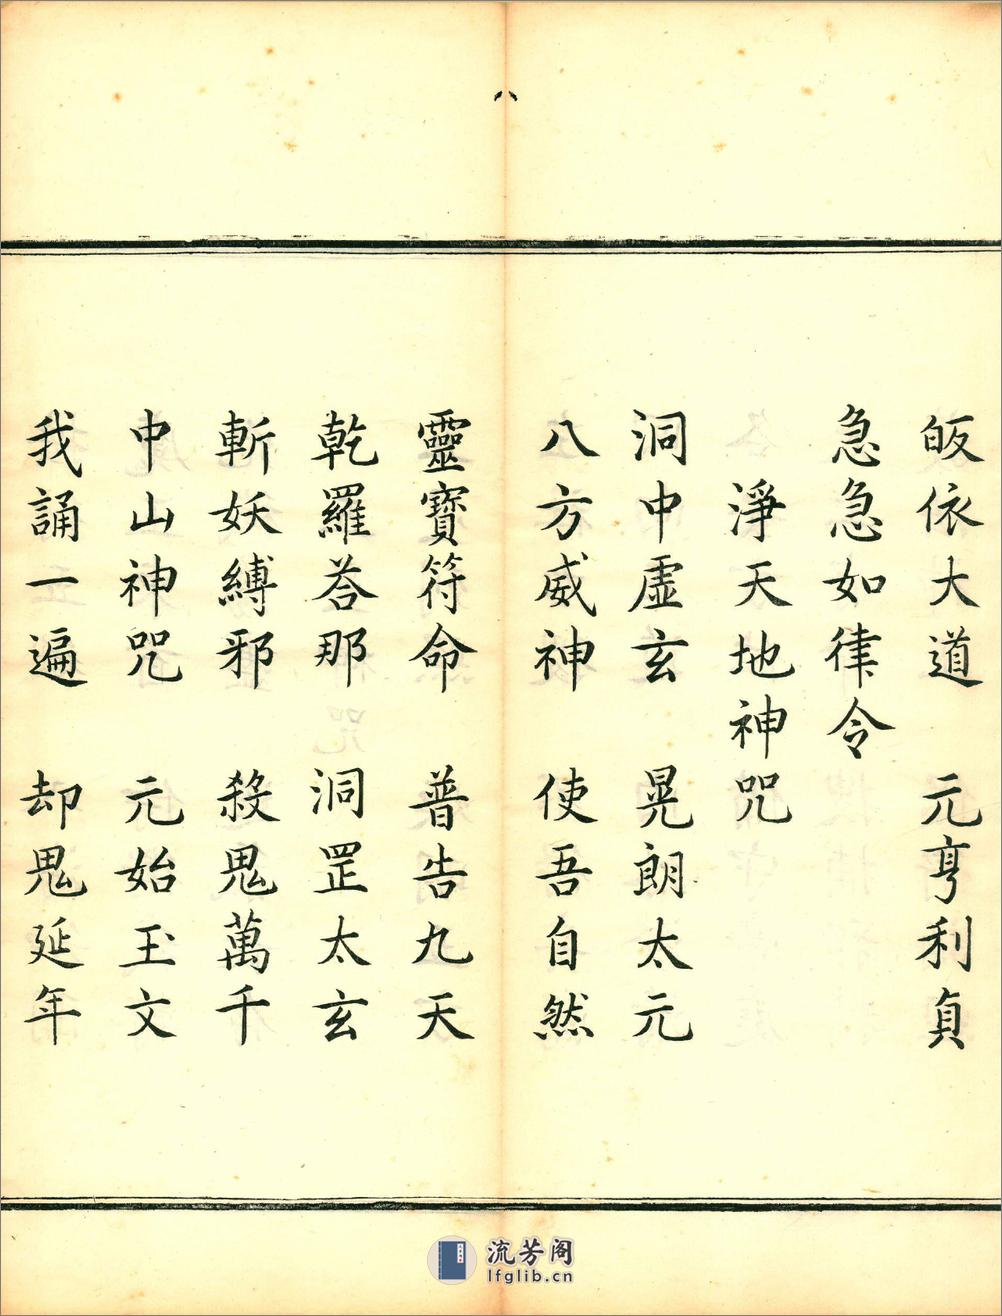 皈依大道 元亨利貞
急急如律令
淨天地神咒
洞中虛玄 晃朗太元
八方威神 使吾自然
靈寶符命 普告九天
乾羅荅那 洞罡太玄
斬妖縛邪 殺鬼萬千
中山神咒 元始玉文
我誦一遍 却鬼延年
流芳阁
lfglib.cn